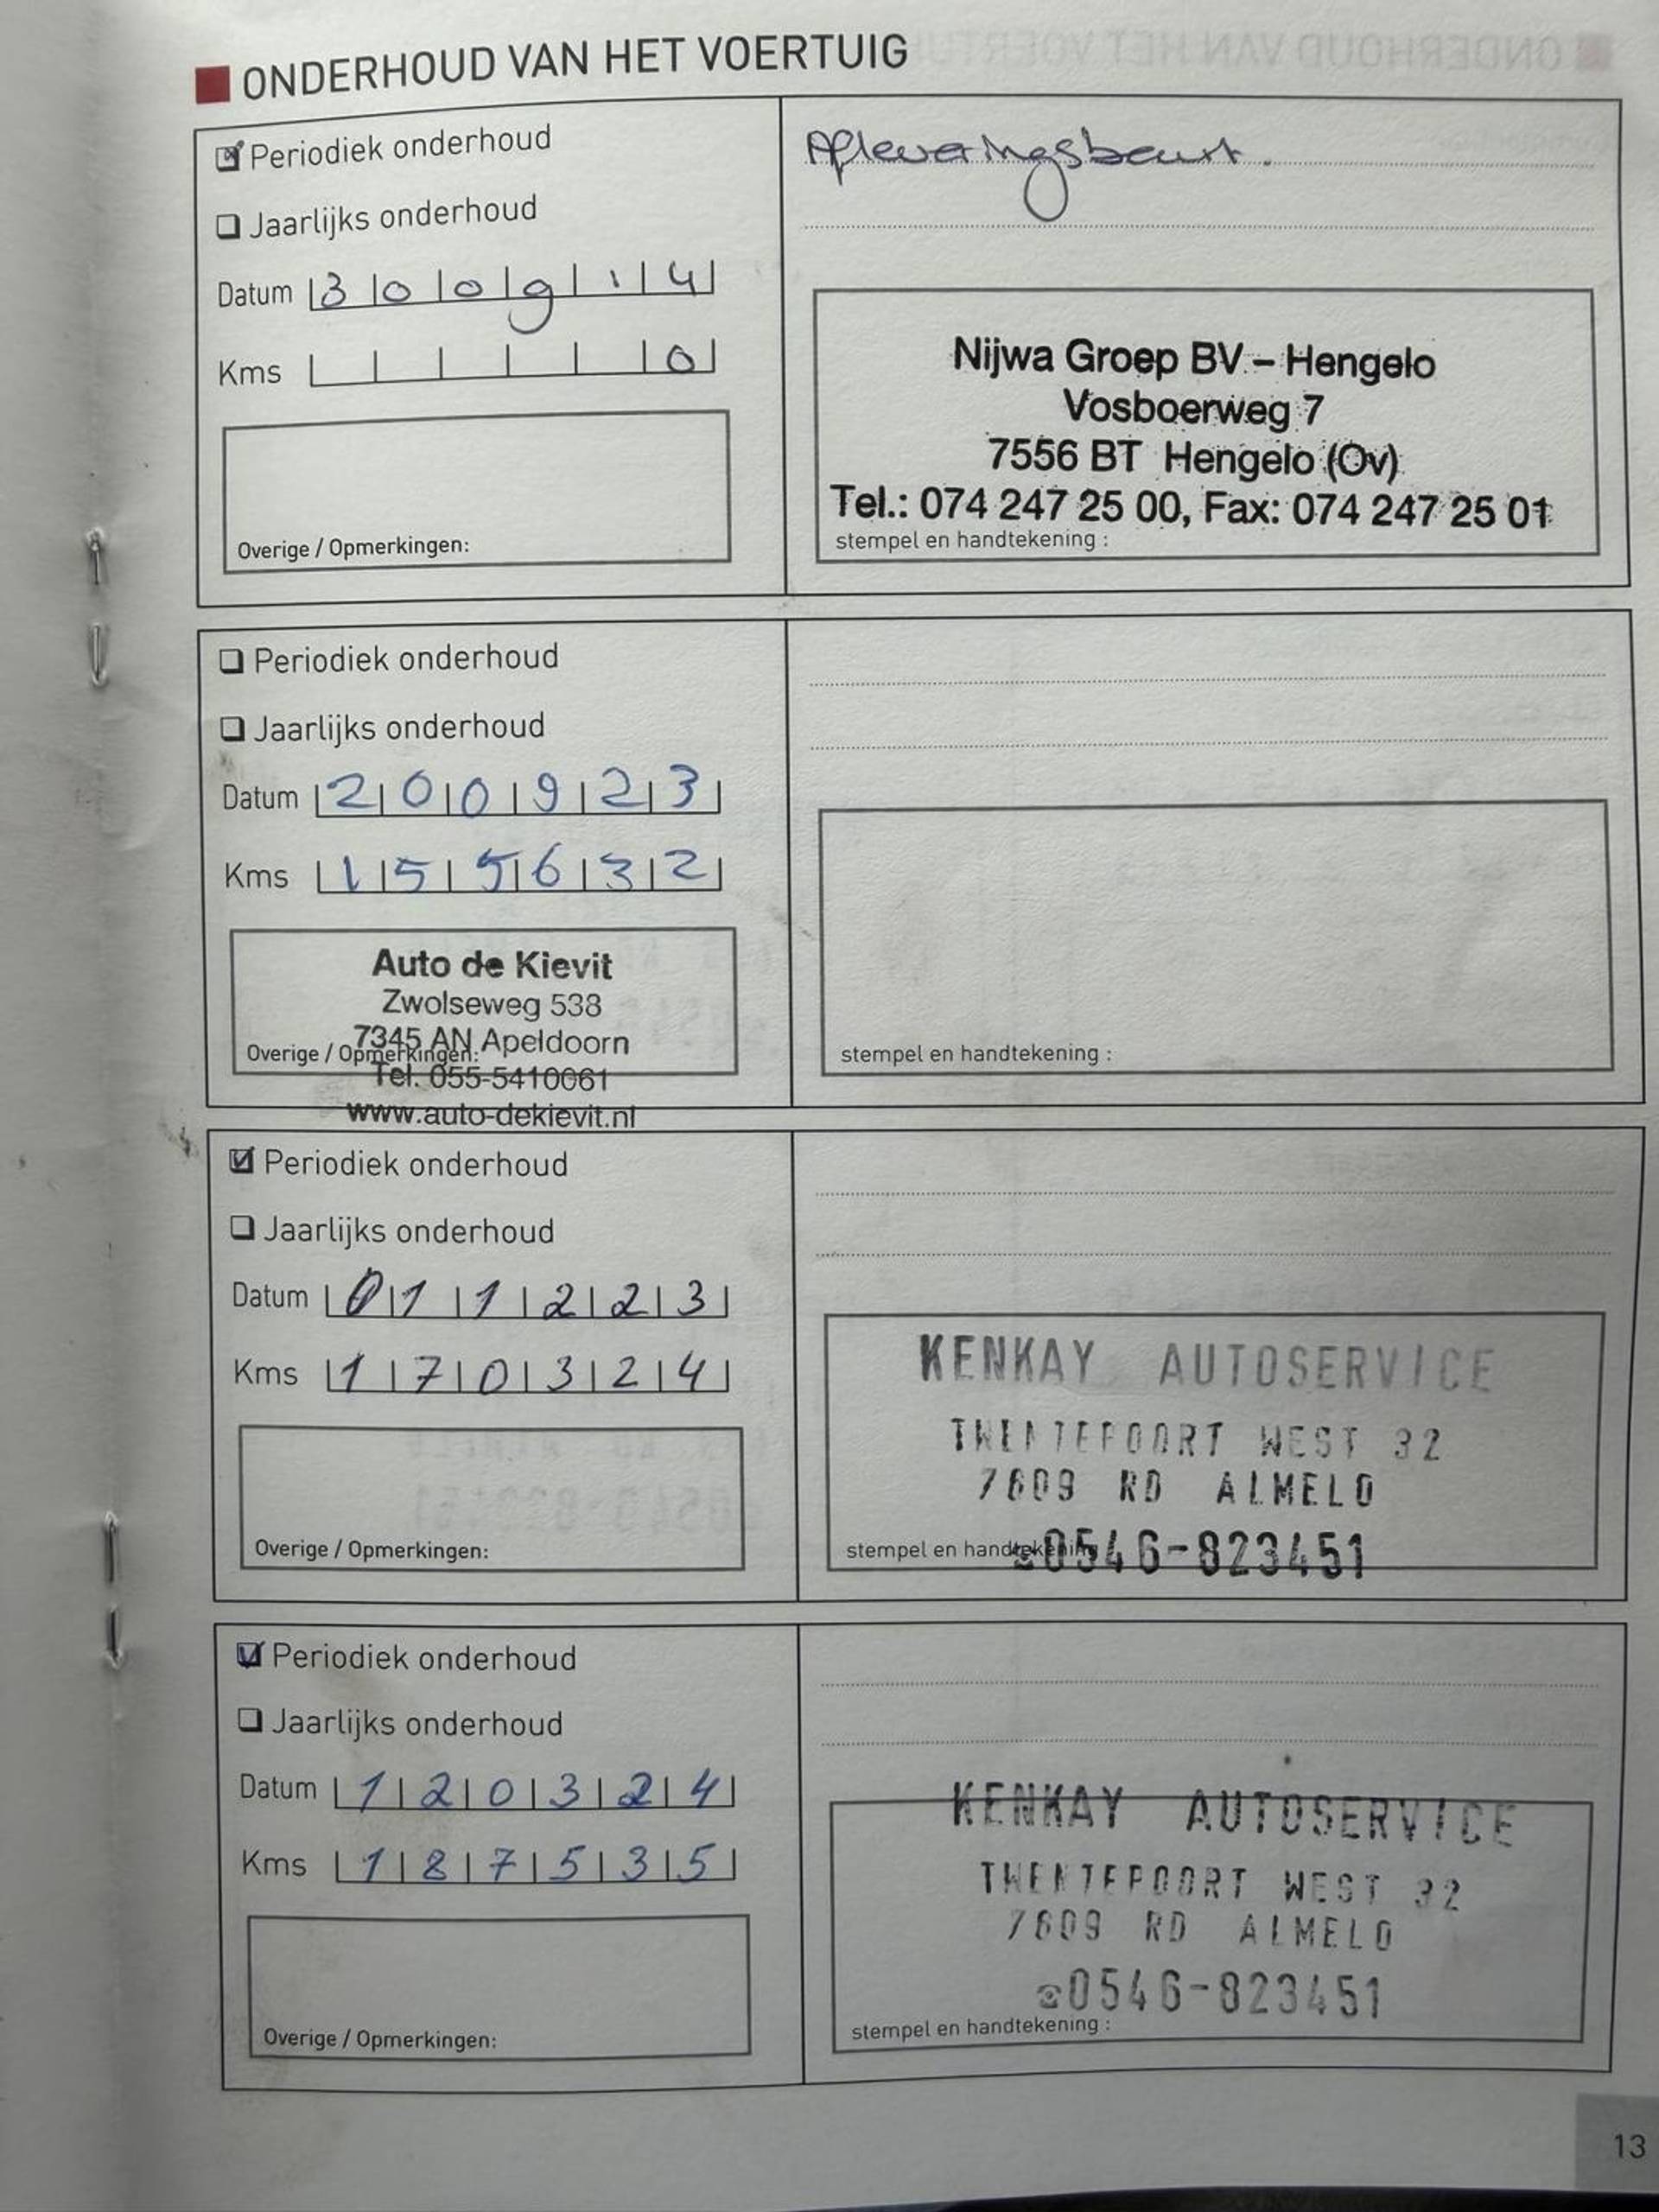 ONDERHOUD VAN HET VOERTUIG
Periodiek onderhoud
Jaarlijks onderhoud
Datum 3 0 0 9 1 4
Kms 0
Overige / Opmerkingen:
Afleveringsbeurt.
Nijwa Groep BV – Hengelo
Vosboerweg 7
7556 BT Hengelo (Ov)
Tel.: 074 247 25 00, Fax: 074 247 25 01
stempel en handtekening :
Periodiek onderhoud
Jaarlijks onderhoud
Datum 2 0 0 9 2 3
Kms 1 5 5 6 3 2
Auto de Kievit
Zwolseweg 538
7345 AN Apeldoorn
Overige / Opmerkingen:
Tel. 055-5410061
www.auto-dekievit.nl
stempel en handtekening :
Periodiek onderhoud
Jaarlijks onderhoud
Datum 0 1 1 2 2 3
Kms 1 7 0 3 2 4
Overige / Opmerkingen:
KENKAY AUTOSERVICE
TWENTEPOORT WEST 32
7609 RD ALMELO
stempel en handtekening
☎0546-823451
Periodiek onderhoud
Jaarlijks onderhoud
Datum 1 2 0 3 2 4
Kms 1 8 7 5 3 5
Overige / Opmerkingen:
KENKAY AUTOSERVICE
TWENTEPOORT WEST 32
7609 RD ALMELO
☎0546-823451
stempel en handtekening :
13